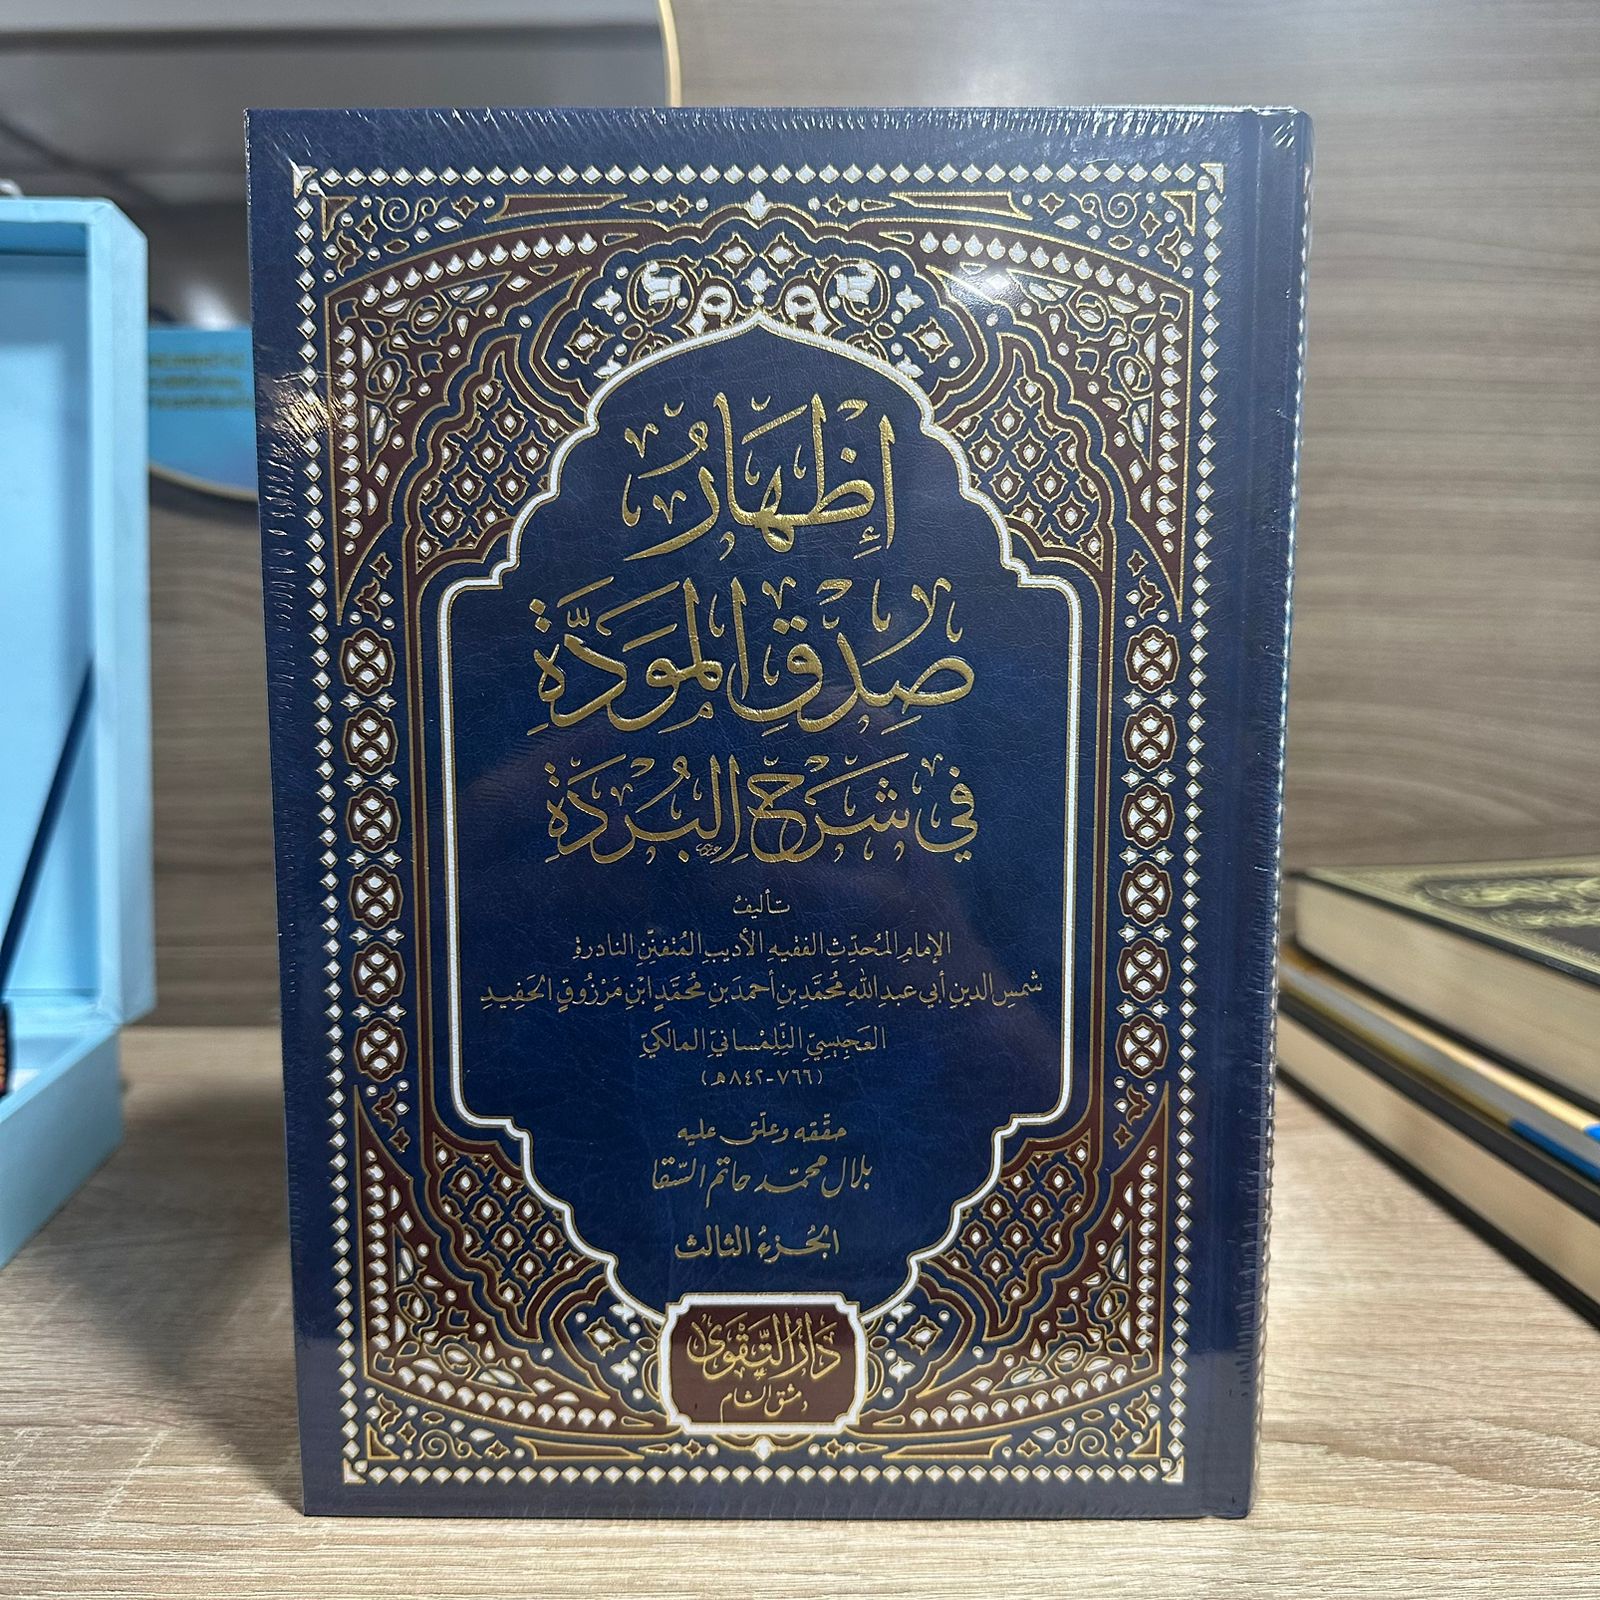 إِظْهَارُ
صِدْقِ المَوَدَّةِ
فِي شَرْحِ البُرْدَةِ
تأليفُ
الإمامِ المُحدِّث الفقيهِ الأديبِ المُتفنِّن النادرة
شمس الدين أبي عبد اللهِ مُحمَّد بن أحمدَ بن مُحمَّدٍ ابْنِ مَرْزُوقٍ الحَفِيدِ
العَجِيسِيِّ التِّلِمْسانيِّ المالكيِّ
(٧٦٦-٨٤٢هـ)
حقّقه وعلّق عليه
بلال محمّد حاتم السّقا
الجُزءُ الثالث
دَارُ التَّقْوَى
دمشق الشام